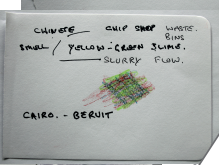 CHINESE CHIP SHOP WASTE.
BINS
SMELL / YELLOW-GREEN SLIME.
SLURRY FLOW.
CAIRO. - BERUIT